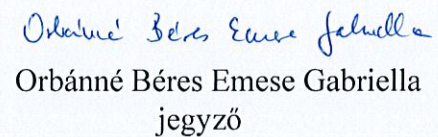 Orbánné Béres Emese Gabriella
Orbánné Béres Emese Gabriella
jegyző